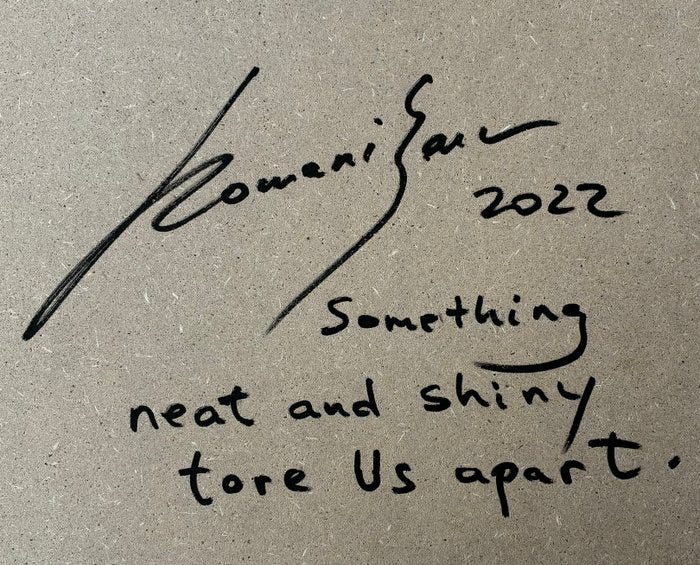 2022
Something
neat and shiny
tore Us apart.